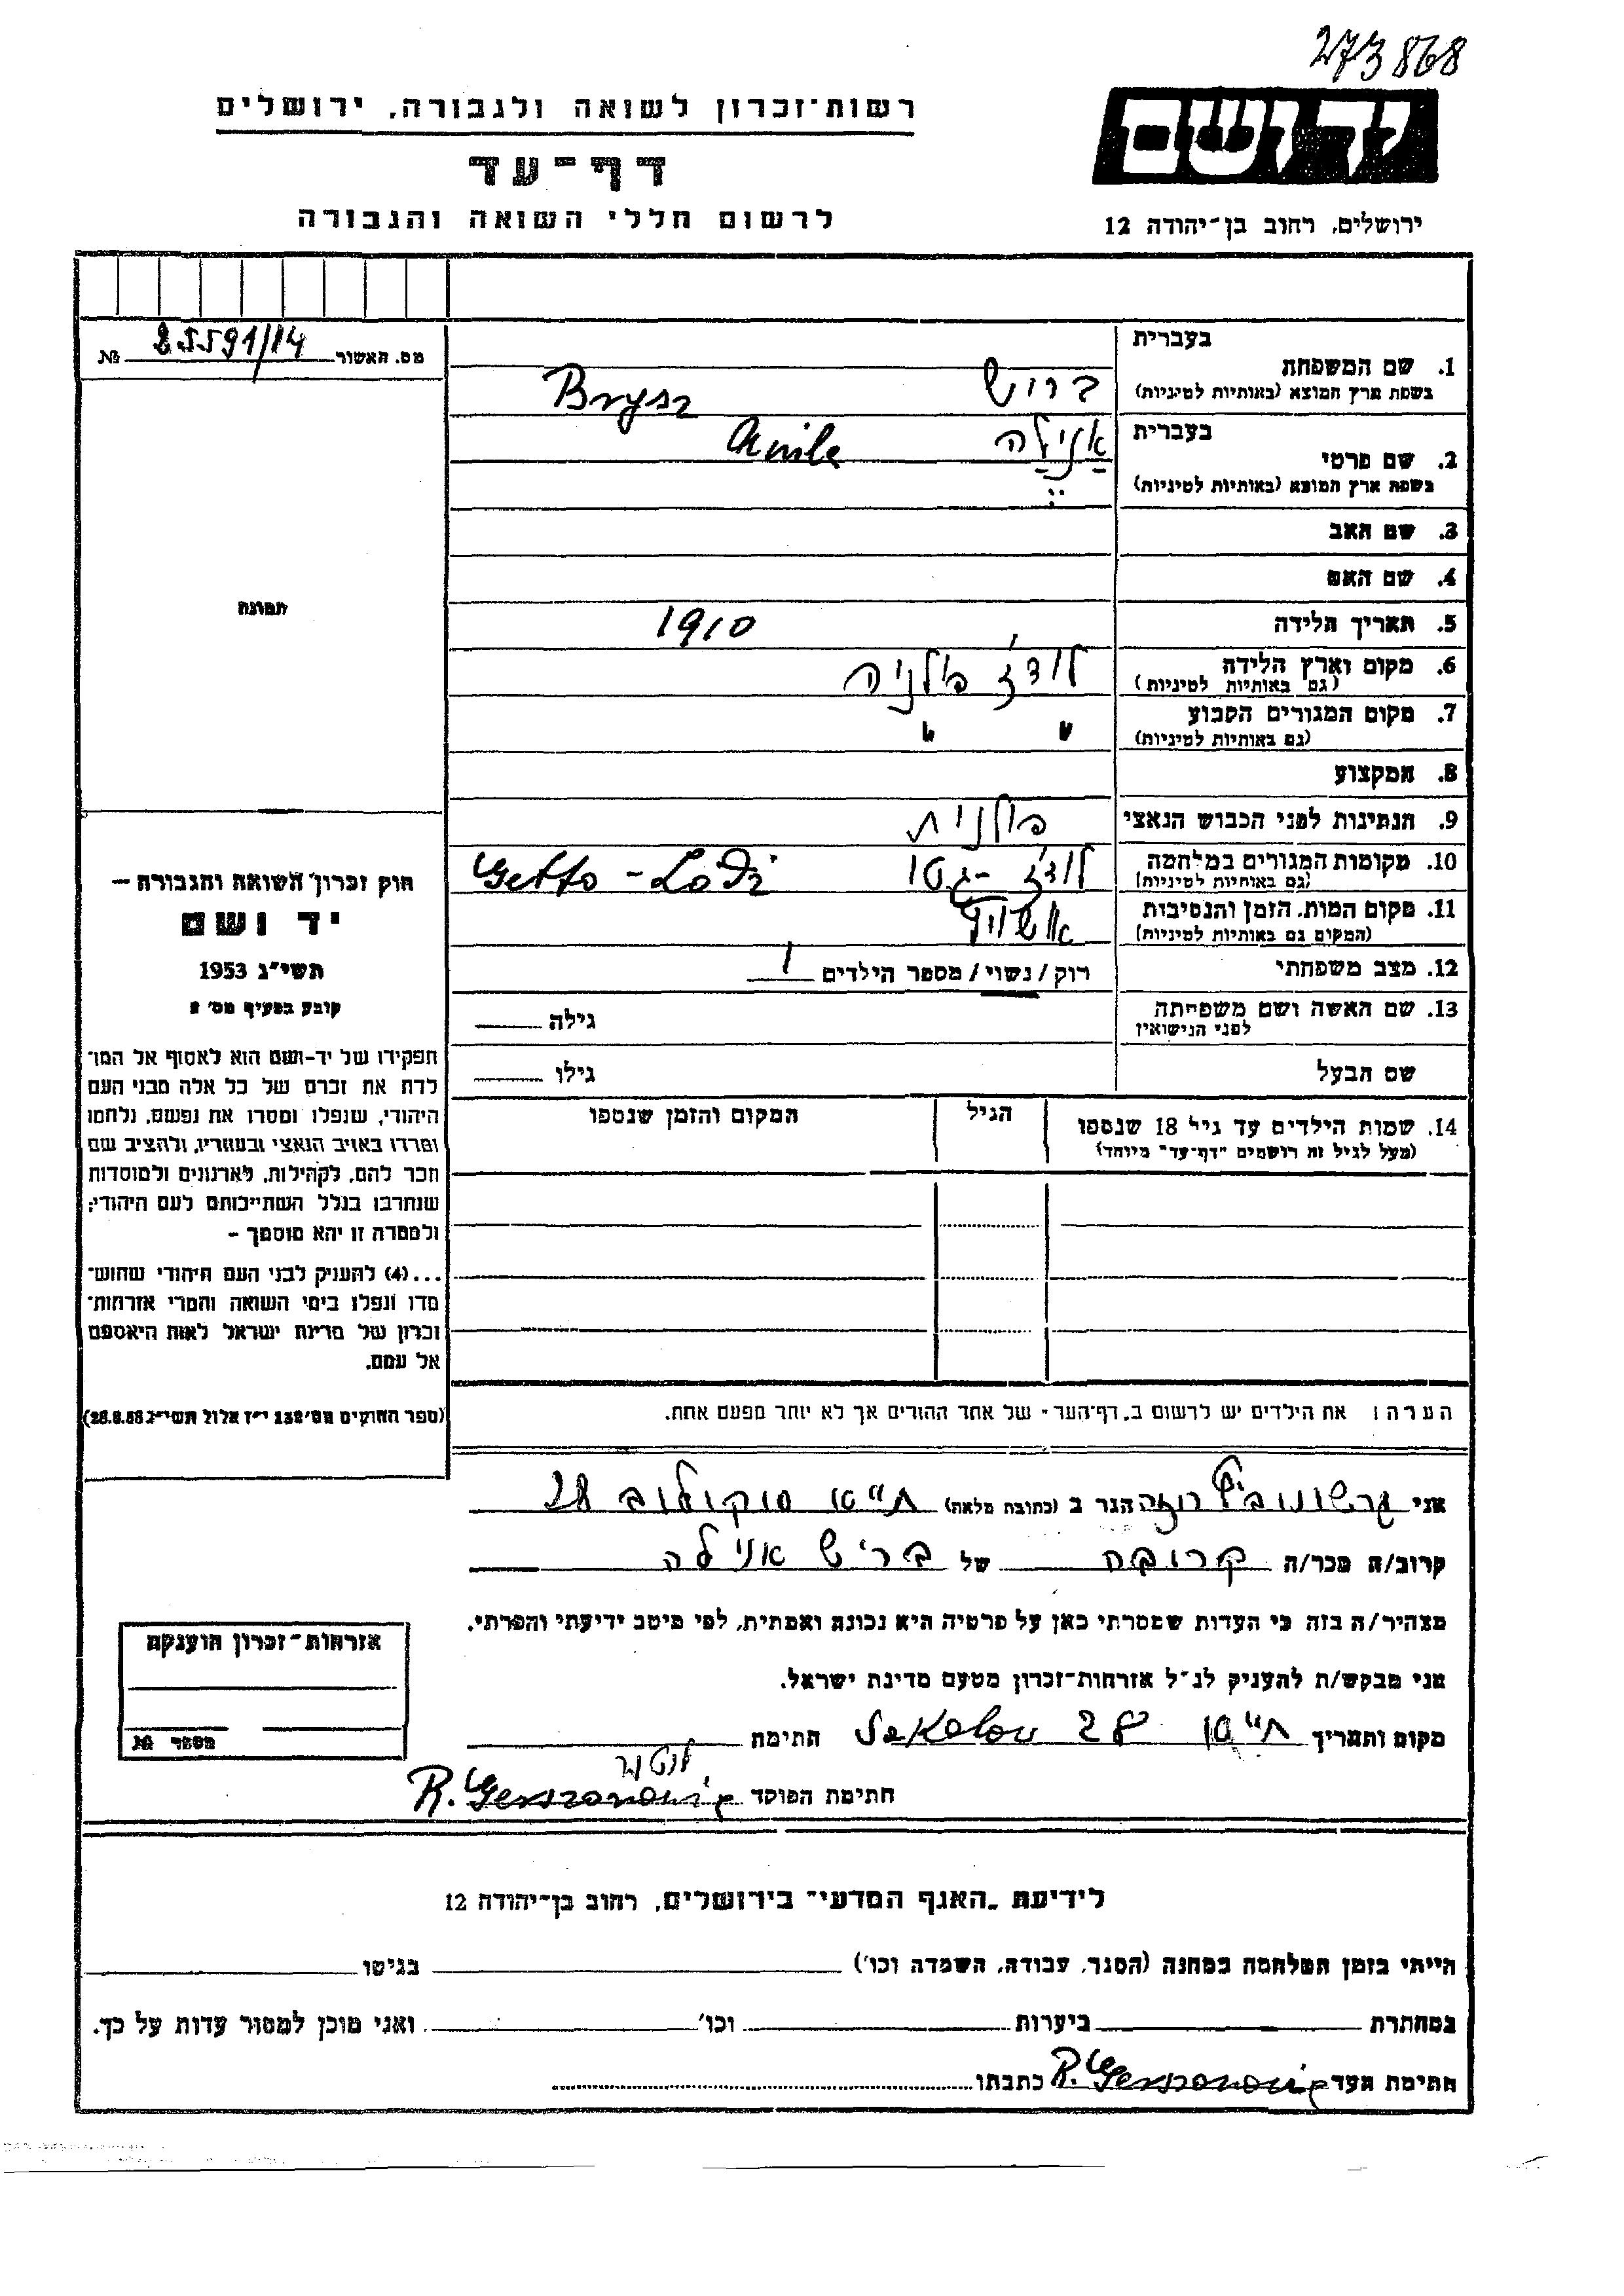 273868
ידושם
ירושלים, רחוב בן-יהודה 12
רשות-זכרון לשואה ולגבורה, ירושלים
דף-עד
לרשום חללי השואה והגבורה
מס. האשור 25591/14 №
תמונה
חוק זכרון השואה והגבורה –
יד ושם
תשי״ג 1953
קובע בסעיף מס׳ 2
תפקידו של יד-ושם הוא לאסוף אל המו־
לדת את זכרם של כל אלה מבני העם
היהודי, שנפלו ומסרו את נפשם, נלחמו
ומרדו באויב הנאצי ובעוזריו, ולהציב שם
וזכר להם, לקהילות, לארגונים ולמוסדות
שנחרבו בגלל השתייכותם לעם היהודי;
ולמטרה זו יהא מוסמך –
...(4) להעניק לבני העם היהודי שהוש־
מדו ונפלו בימי השואה והמרי אזרחות־
זכרון של מדינת ישראל לאות היאספם
אל עמם.
(ספר החוקים מס׳ 132 י״ז אלול תשי״ג 28.8.53)
בעברית
1. שם המשפחה ברוש Brysz
בשפת ארץ המוצא (באותיות לטיניות)
בעברית
2. שם פרטי אנילה Anila
בשפת ארץ המוצא (באותיות לטיניות)
3. שם האב
4. שם האם
5. תאריך הלידה 1910
6. מקום וארץ הלידה לודז׳ פולניה
(גם באותיות לטיניות)
7. מקום המגורים הקבוע " "
(גם באותיות לטיניות)
8. המקצוע
9. הנתינות לפני הכבוש הנאצי פולנית
10. מקומות המגורים במלחמה לודז׳ - גטו Getto - Lodź
(גם באותיות לטיניות)
11. מקום המות, הזמן והנסיבות
(המקום גם באותיות לטיניות)
12. מצב משפחתי רוק / נשוי / מספר הילדים 1
13. שם האשה ושם משפחתה גילה
לפני הנישואין
שם הבעל גילו
14. שמות הילדים עד גיל 18 שנספו הגיל המקום והזמן שנספו
(מעל לגיל זה רושמים "דף-עד" מיוחד)
הערה: את הילדים יש לרשום ב„דף-העד" של אחד ההורים אך לא יותר מפעם אחת.
אני גרשונוביץ רוזה הגר ב (כתובת מלאה) ת"א סוקולוב 28
קרוב/ה מכר/ה קרובה של בריש אנילה
מצהיר/ה בזה כי העדות שמסרתי כאן על פרטיה היא נכונה ואמתית, לפי מיטב ידיעתי והכרתי.
אני מבקש/ת להעניק לנ״ל אזרחות-זכרון מטעם מדינת ישראל.
מקום ותאריך ת"א Sokolov 28 חתימת
חתימת הפוקד R. Gerszonowicz
אזרחות-זכרון הוענקה
מספר №
לידיעת „האגף המדעי" בירושלים, רחוב בן-יהודה 12
הייתי בזמן המלחמה במחנה (הסגר, עבודה, השמדה וכו׳) בגיטו
במחתרת ביערות וכו׳ ואני מוכן למסור עדות על כך.
חתימת העד R. Gerszonowicz כתבתו